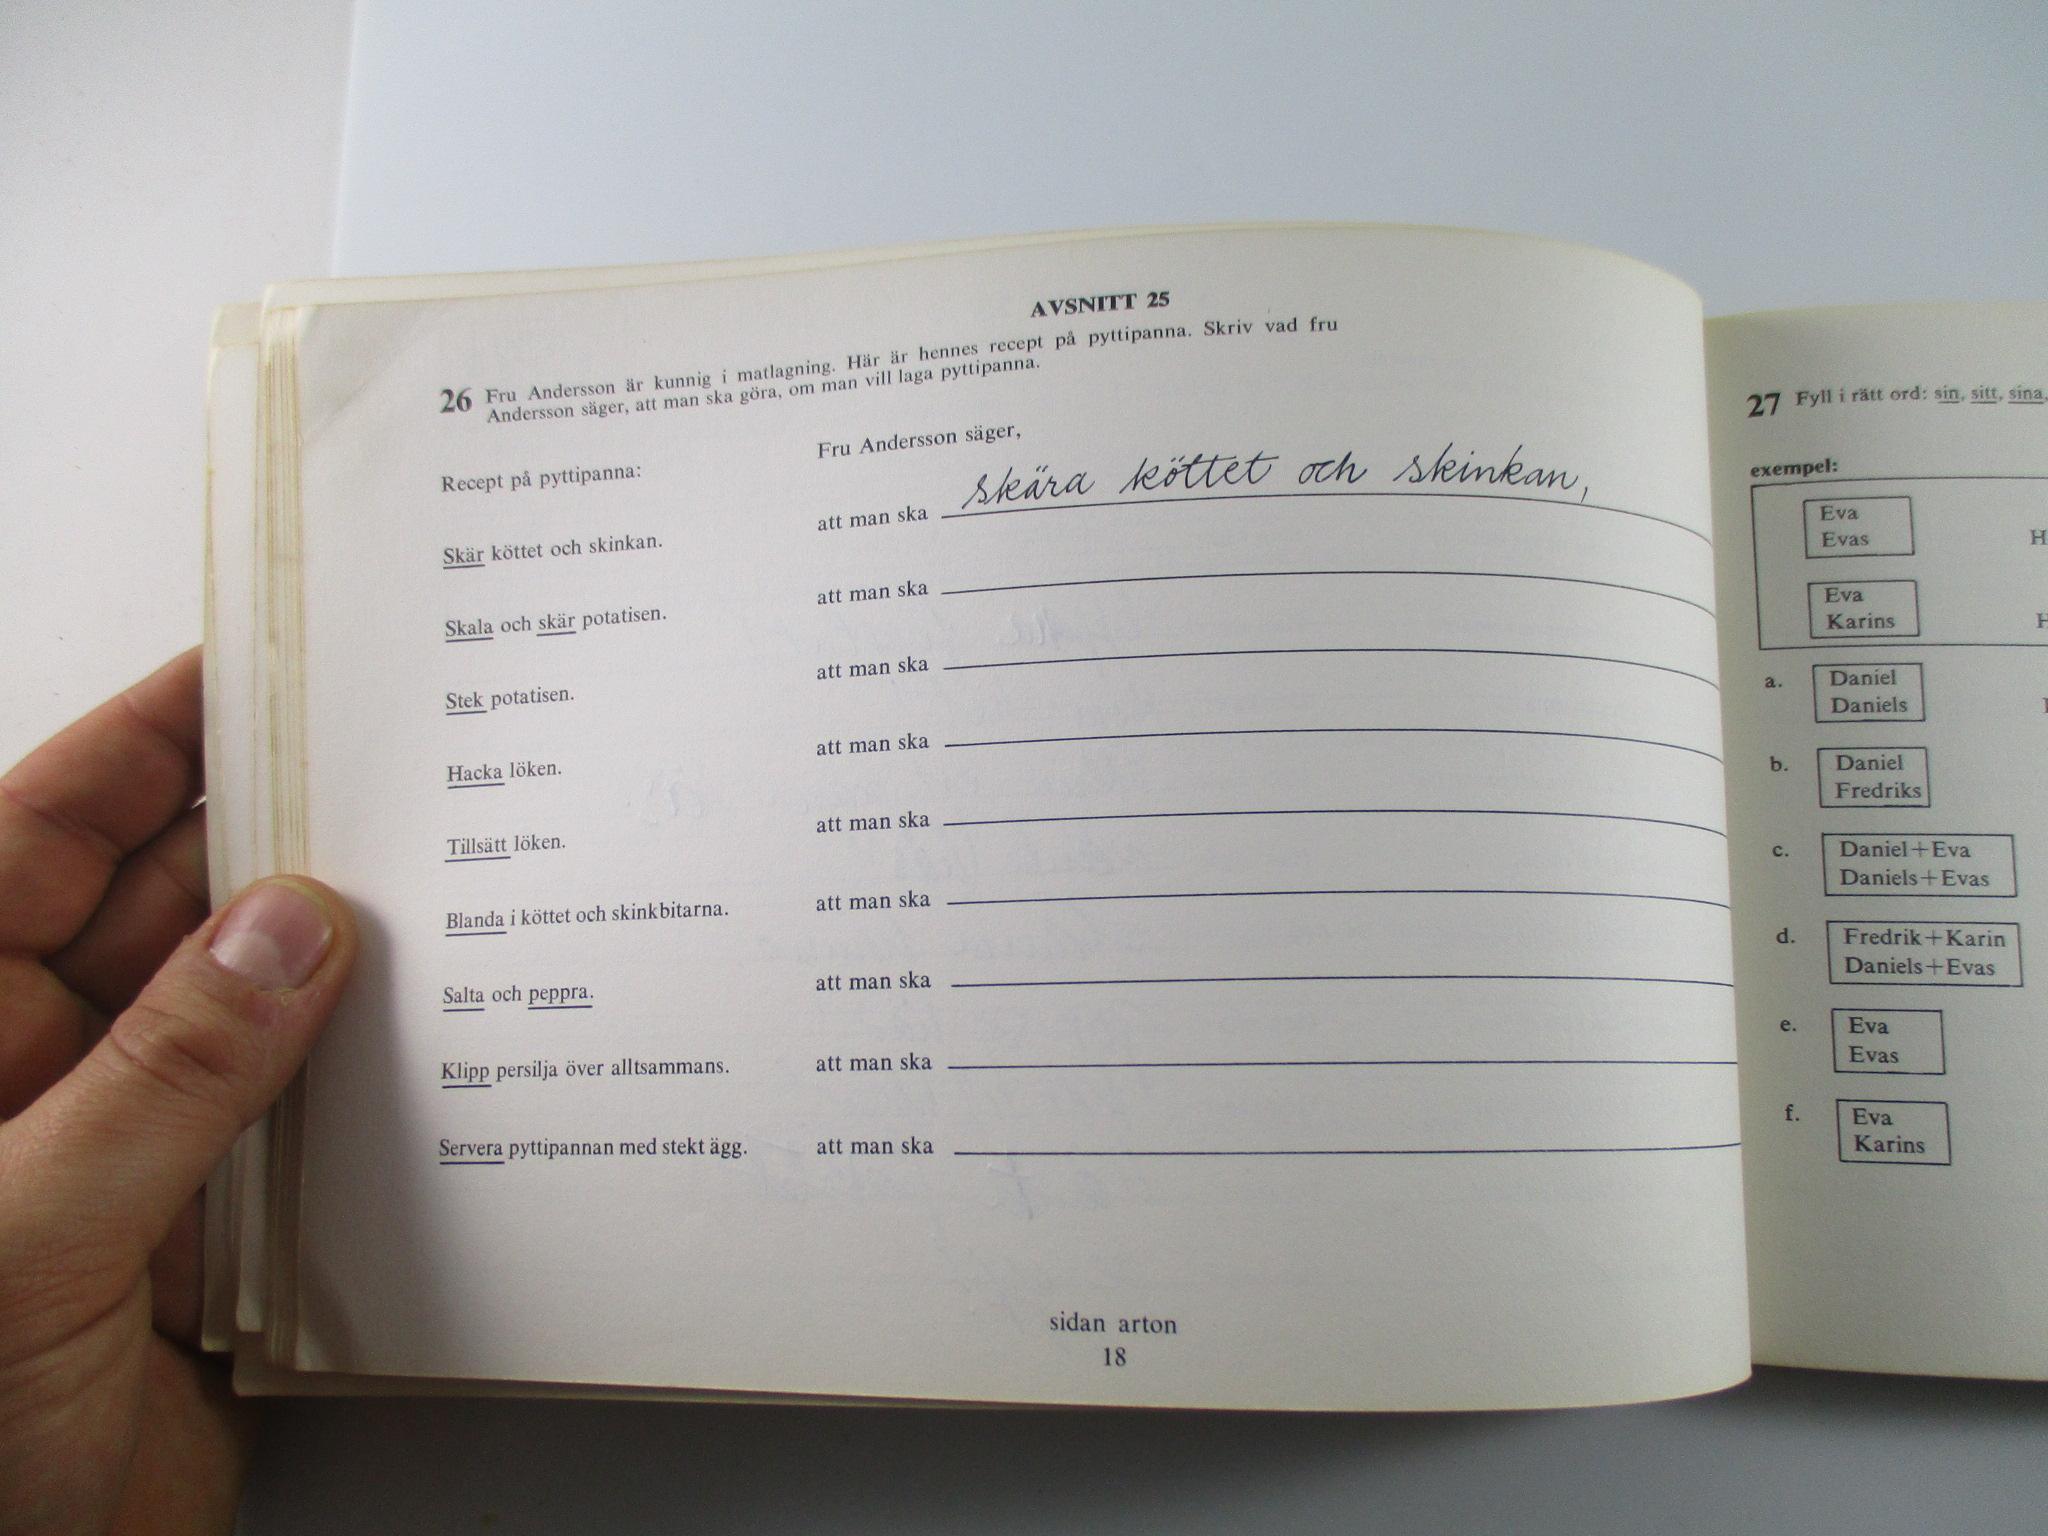 AVSNITT 25
26 Fru Andersson är kunnig i matlagning. Här är hennes recept på pyttipanna. Skriv vad fru
Andersson säger, att man ska göra, om man vill laga pyttipanna.
Recept på pyttipanna:
Fru Andersson säger,
Skär köttet och skinkan.
att man ska skära köttet och skinkan,
Skala och skär potatisen.
att man ska
Stek potatisen.
att man ska
Hacka löken.
att man ska
Tillsätt löken.
att man ska
Blanda i köttet och skinkbitarna.
att man ska
Salta och peppra.
att man ska
Klipp persilja över alltsammans.
att man ska
Servera pyttipannan med stekt ägg.
att man ska
sidan arton
18
27 Fyll i rätt ord: sin, sitt, sina,
exempel:
Eva
Evas
H
Eva
Karins
H
a. Daniel
Daniels
b. Daniel
Fredriks
c. Daniel+Eva
Daniels+Evas
d. Fredrik+Karin
Daniels+Evas
e. Eva
Evas
f. Eva
Karins